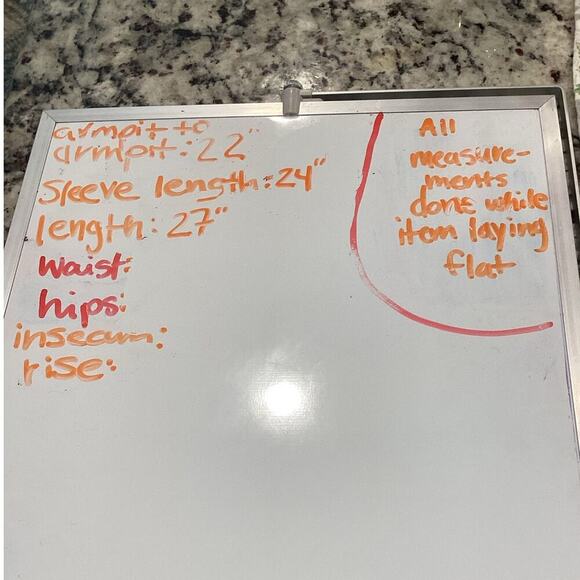 armpit to
armpit: 22"
Sleeve length: 24"
length: 27"
Waist:
hips:
inseam:
rise:
All
measure-
ments
done while
item laying
flat